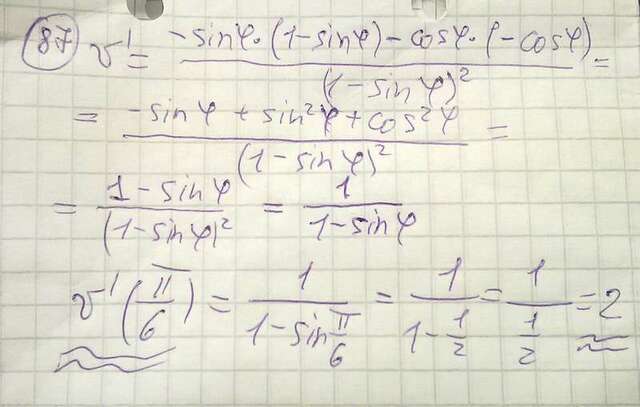 (87) v' = (-sinφ·(1-sinφ)-cosφ·(-cosφ))/((1-sinφ)²) =
= (-sinφ + sin²φ + cos²φ)/((1-sinφ)²) =
= (1-sinφ)/((1-sinφ)²) = 1/(1-sinφ)
v'(π/6) = 1/(1-sin π/6) = 1/(1-1/2) = 1/(1/2) = 2